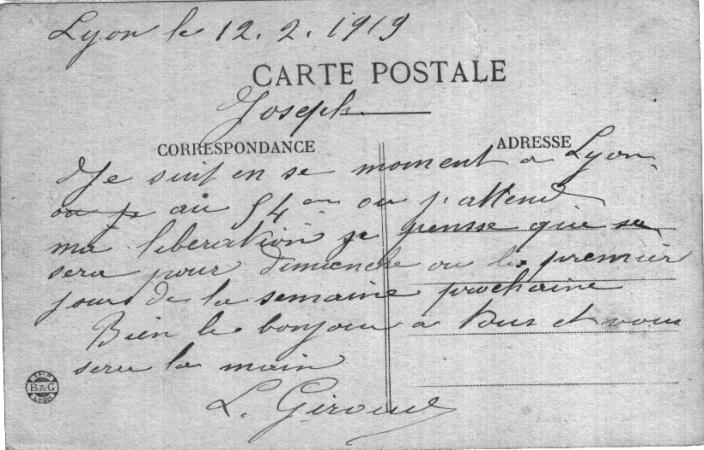 Lyon le 12.2.1919
CARTE POSTALE
Joseph
CORRESPONDANCE
ADRESSE
Je suis en se moment a Lyon
ou je au 54 en ou j'attend
ma liberation je pensse que sa
sera pour dimanche ou les premier
jours de la semaine prochaine
Bien le bonjour a tous et vous
sere la main
L. Giroud
B&G
LYON